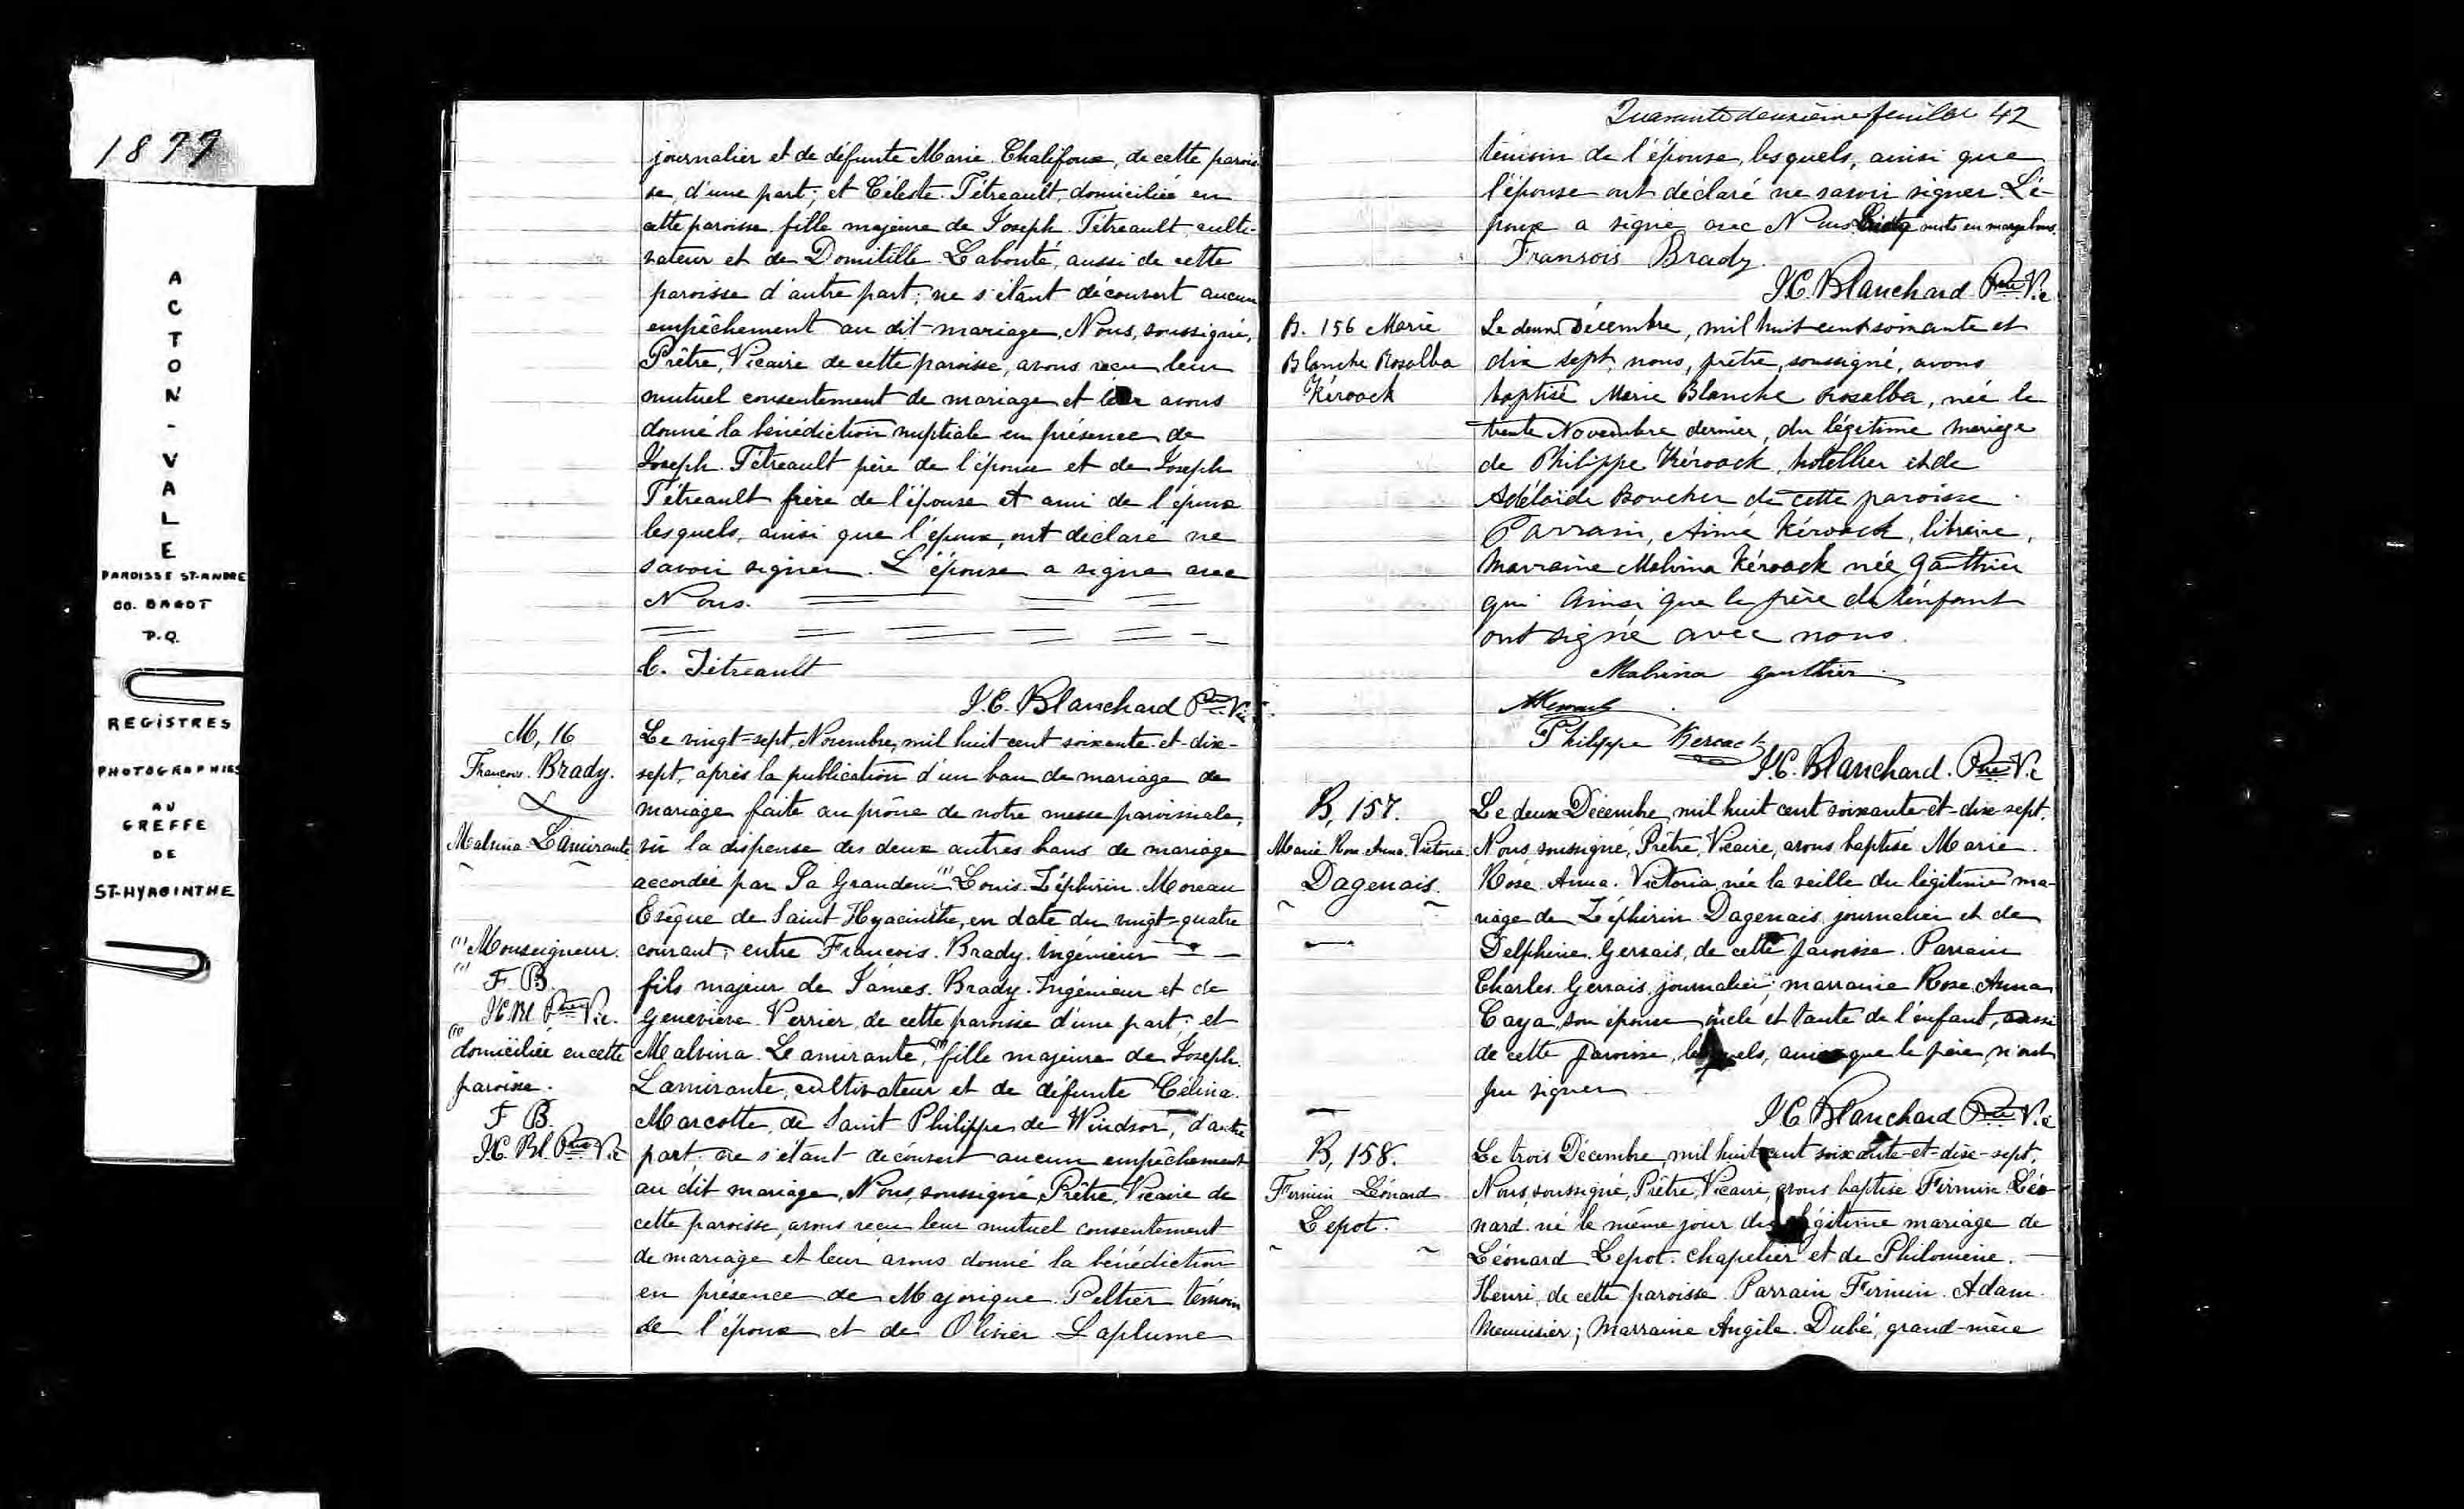 1877
ACTON-VALE
PAROISSE ST-ANDRE
CO. BAGOT
P.Q.
REGISTRES
PHOTOGRAPHIES
AU
GREFFE
DE
ST-HYACINTHE
journalier et de défunte Marie Chalifoux, de cette parois
se, d'une part; et Céleste Tétreault, domiciliée en
cette paroisse fille majeure de Joseph Tétreault culti-
vateur et de Domitille Labonté, aussi de cette
paroisse d'autre part; ne s'étant découvert aucun
empêchement au dit mariage, Nous, soussigné,
Prêtre, Vicaire de cette paroisse, avons reçu leur
mutuel consentement de mariage et leur avons
donné la bénédiction nuptiale en présence de
Joseph Tétreault père de l'épouse et de Joseph
Tétreault frère de l'épouse et ami de l'époux
lesquels, ainsi que l'époux, ont déclaré ne
savoir signer. L'épouse a signé avec
Nous.
C. Tétreault
J.C. Blanchard Ptre Vic
M, 16
François Brady.
&
Malvina Lamirante
Le vingt-sept, Novembre, mil huit cent soixante-et-dix-
sept, après la publication d'un ban de mariage de
mariage faite au prône de notre messe paroissiale,
vû la dispense des deux autres bans de mariage
accordée par Sa Grandeur (1) Louis Zéphirin Moreau
Evêque de Saint Hyacinthe, en date du vingt-quatre
courant; entre François Brady. Ingénieur
fils majeur de James Brady. Ingénieur et de
Geneviève Verrier, de cette paroisse d'une part; et
Malvina Lamirante, (11) fille majeure de Joseph
Lamirante, cultivateur et de défunte Célina
Marcotte, de Saint Philippe de Windsor, d'autre
part; ne s'étant découvert aucun empêchement
au dit mariage, Nous, soussigné, Prêtre, Vicaire de
cette paroisse, avons reçu leur mutuel consentement
de mariage et leur avons donné la bénédiction
en présence de Majorique Peltier témoin
de l'époux et de Olivier Laplume
(1) Monseigneur.
(1) F. B.
J.C. Bl. Ptre Vic.
(11) domiciliée en cette
paroisse.
F B.
J.C. Bl. Ptre Vic
Quarante deuxième feuillet 42
témoin de l'épouse, lesquels, ainsi que
l'épouse ont déclaré ne savoir signer. L'é-
poux a signé avec Nous mots en marge bons.
Fransois Brady.
J.C. Blanchard Ptre Vic
B. 156 Marie
Blanche Rosalba
Kérouack
Le deux Décembre, mil huit cent soixante et
dix sept, nous, prêtre, soussigné, avons
baptisé Marie Blanche Rosalba, née le
trente Novembre dernier, du légitime mariage
de Philippe Kérouack, hôtellier et de
Adélaïde Boucher de cette paroisse.
Parrain, Aimé Kérouack, libraire,
Marraine Malvina Kérouack née Gauthier
qui ainsi que le père de l'enfant
ont signé avec nous.
Malvina gauthier
Philippe Keroack
J.C. Blanchard. Ptre Vic
B, 157.
Marie Rose Anna Victoria
Dagenais.
Le deux Décembre, mil huit cent soixante-et-dix-sept,
Nous soussigné, Prêtre, Vicaire, avons baptisé Marie
Rose. Anna. Victoria, née la veille du légitime ma-
riage de Zéphirin Dagenais, journalier et de
Delphine Gervais, de cette paroisse. Parrain
Charles Gervais, journalier; marraine Rose Anna
Caya, son épouse oncle et tante de l'enfant, aussi
de cette paroisse, lesquels, ainsi que le père, n'ont
pu signer
J C Blanchard Ptre Vic
B, 158.
Firmin Léonard
Lepot.
Le trois Décembre, mil huit cent soixante-et-dix-sept,
Nous, soussigné, Prêtre, Vicaire, avons baptisé Firmin Léo
nard né le même jour du légitime mariage de
Léonard Lepot. chapelier et de Philomène.
Henri, de cette paroisse. Parrain Firmin Adam
Menuisier; Marraine Angèle Dubé, grand-mère